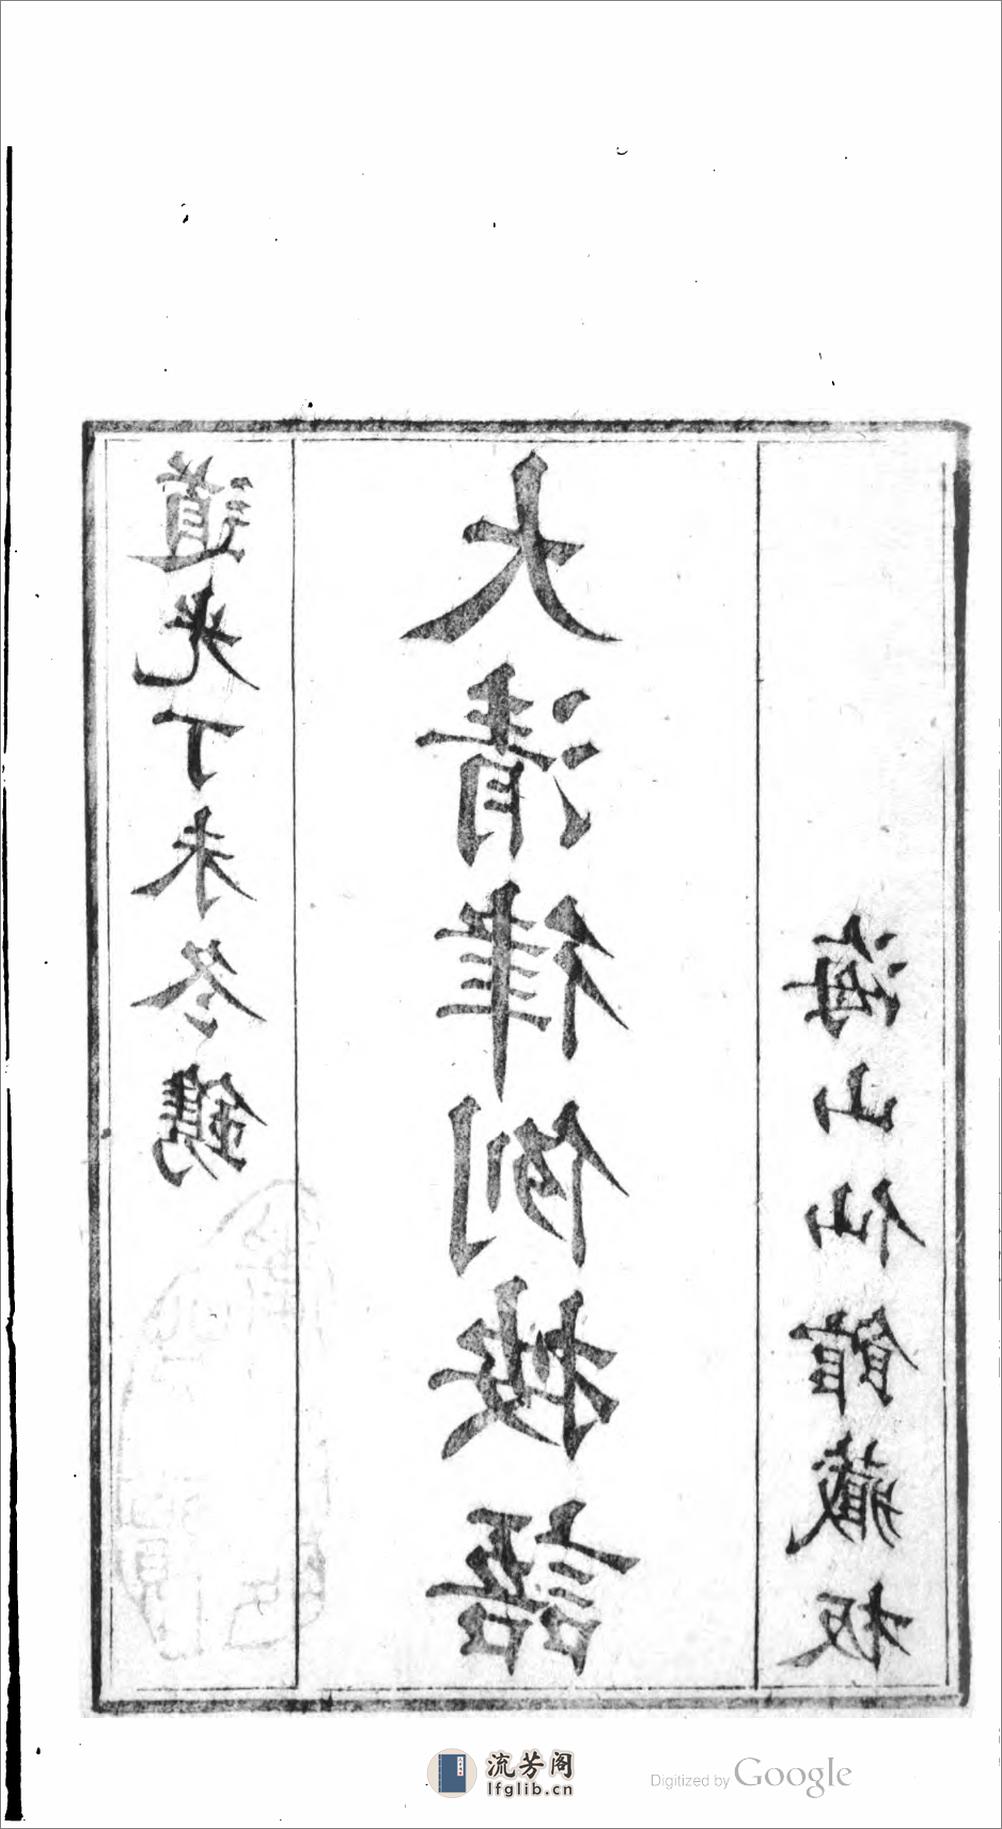 道光丁未冬鐫
大清律例按語
海山仙館藏板
流芳阁
lfglib.cn
Digitized by Google